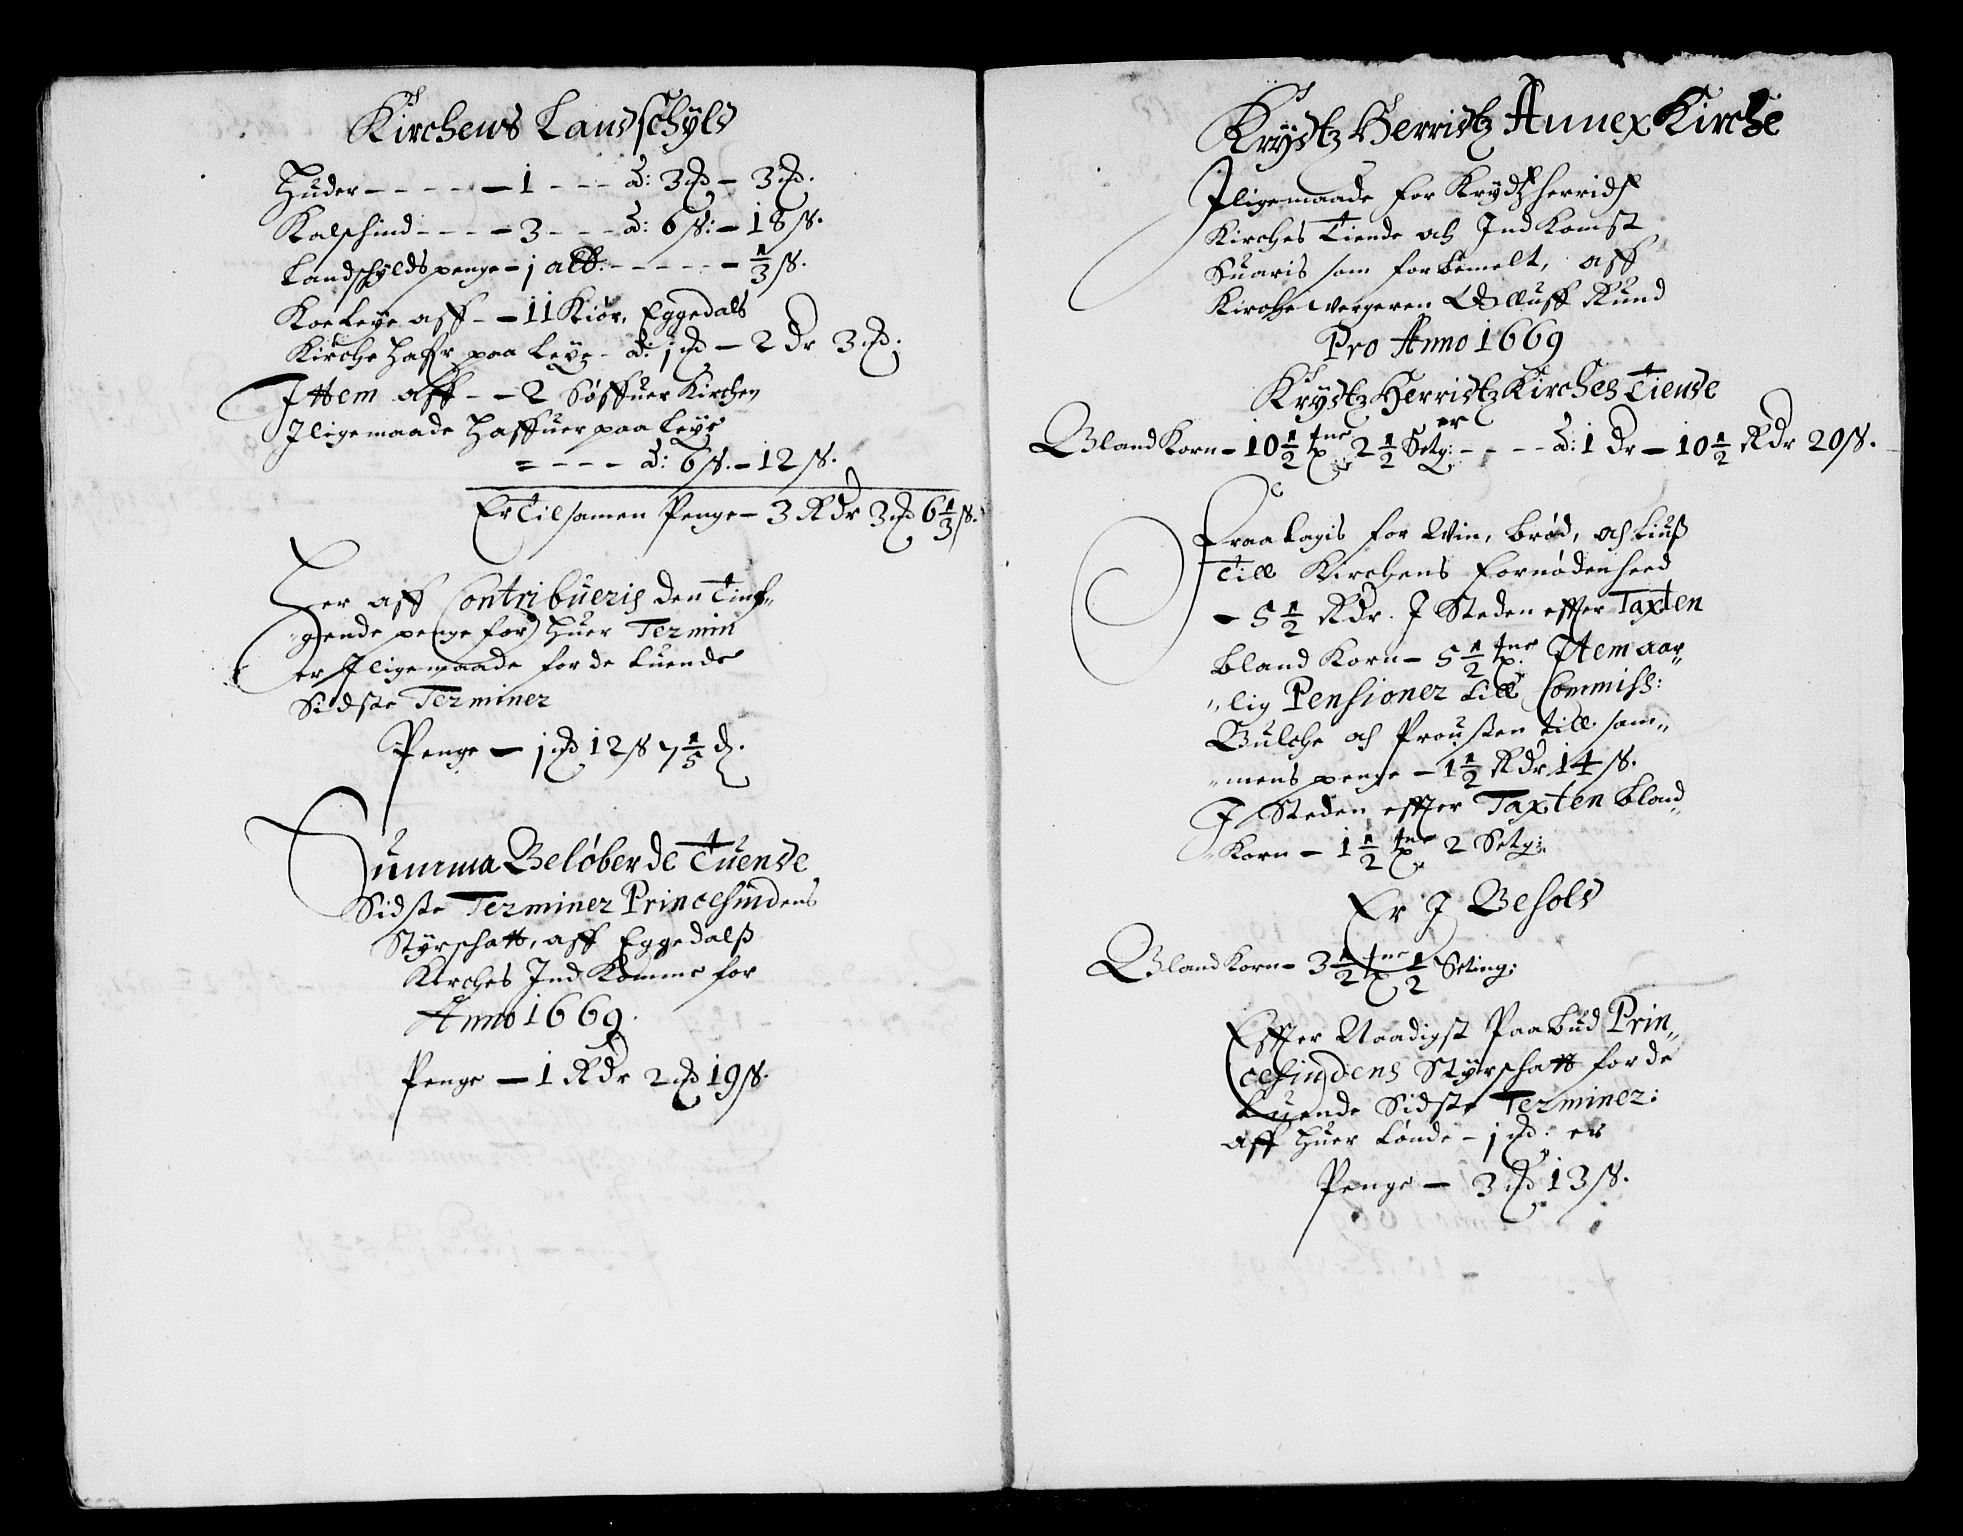 Kirchens Landschyld
Huder - - - - - 1 - - - á: 3 md - 3 md.
Kalfschind - - - - 3 - - - - á: 6 ß: - 18 ß.
Landschyldspenge - j alb: - - - - - - 1/3 ß.
Koe Leye aff - - 11 Kiør, Eggedals
Kirche Hafr paa Leye - á: j md - 2 Dr 3 md:
Ittem aff - - 2 Søffuer Kirchen
Iligemaade Haffuer paa Leye
= - - - - á: 6 ß. - 12 ß.
Er Tilsamen Penge - 3 Rdr 3 md 6 1/3 ß.
Her aff Contribueris den Tinf-
gende penge for Huer Termin
er Iligemaade for de tuende
Sidste Terminer
Penge - j md 12 ß 7 1/5 d.
Summa Beløber de Tuende
Sidste Terminer Princesindens
Styrschatt, aff Eggedalß
Kirches Ind Komme for
Anno 1669.
Penge - 1 Rdr 2 md 19 ß.
Krydtz Herridtz Annex Kirche
Iligemaade for Krydtzherridtz
Kirches Tiende och Ind Komst
Suaris som forbemelt, aff
Kirche vergeren Olluff Rund
Pro Anno 1669
Krydtz Herridtz Kirches Tiende
Bland Korn - 10 1/2 tne 2 1/2 Setg: er - - - - á: 1 Dr - 10 1/2 Rdr 20 ß.
Fraatagis for Win, brød, och Liuß
Till Kirchens Fornødenheed
- 5 1/2 Rdr. I Steden effter Taxten
bland Korn - 5 1/2 tne. Item aar„
„lig Pensioner till Commiss:
Bulche och Prousten till sam„
„mens penge - 1 1/2 Rdr 14 ß.
I Steden effter Taxten bland„
„Korn - 1 1/2 tne 2 Setg:
Er I Behold
Bland Korn - 3 1/2 tne 1/2 Seting:
Effter Naadigst Paabud Prin„
cesindens Styrschatt for de
tuende Sidste Terminer:
aff Huer tønde - j md: er
Penge - 3 md 13 ß.